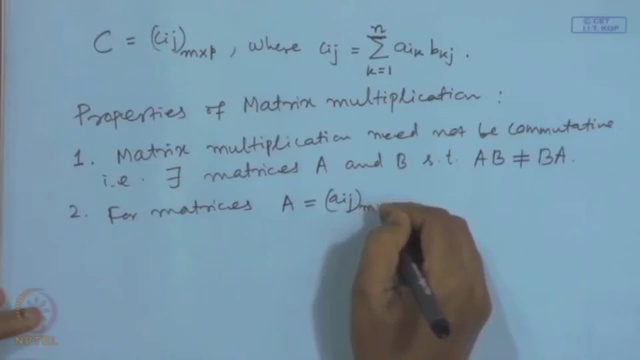 © CET
I.I.T. KGP
C = (cij)m×p, where cij = n∑k=1 aik bkj.
Properties of Matrix multiplication :
1. Matrix multiplication need not be commutative
i.e. ∃ matrices A and B s.t. AB ≠ BA.
2. For matrices A = (aij)m
NPTEL